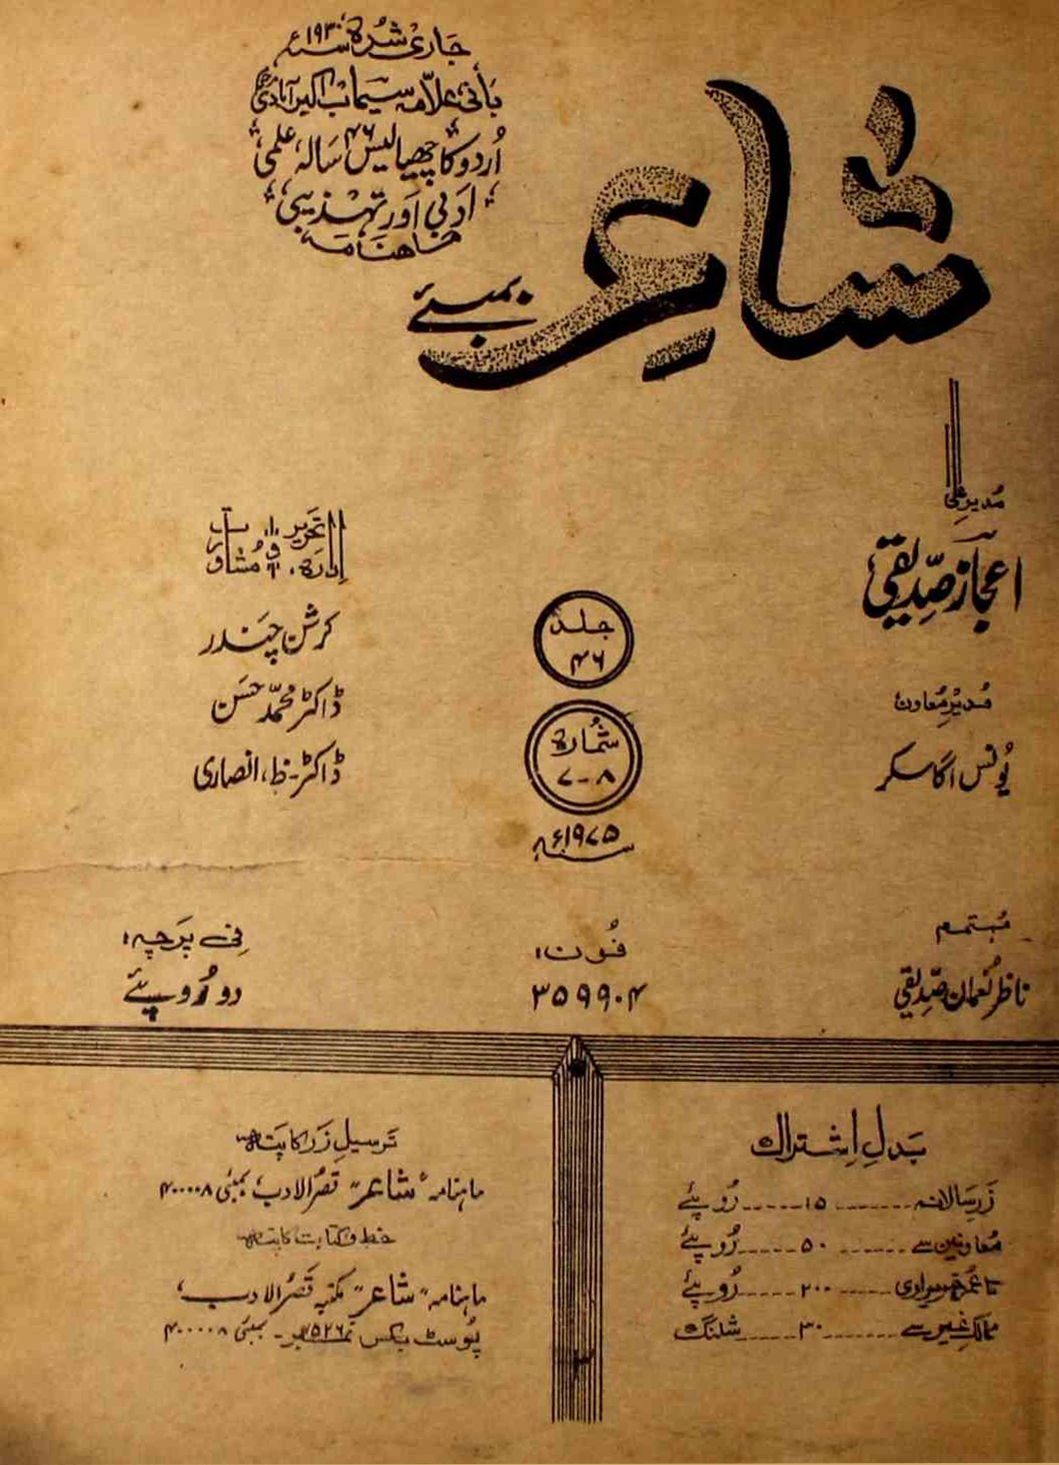 جاری شدہ سنہ ۱۹۳۰ء
بانی، علامہ سیماب اکبر آبادی
اُردو کا چھیالیس ۴۶ سالہ، علمی،
ادبی اور تہذیبی
ماھنامہ
شاعر
بمبئے
مُدیر
اعجاز صدّیقی
ادارہ تحریر و مشاورت
کرشن چندر
ڈاکٹر محمّد حسن
ڈاکٹر ظ، انصاری
جلد
۴۶
شُمارہ
۷-۸
سنہ ۱۹۷۵ء
مُدیرِ مُعاون
یُونس اگاسکر
مہتمم
ناظر نُعمان صِدّیقی
فُون:
۳۵۹۹۰۴
فی پرچہ:
دو رُوپیئے
بَدلِ اِشتراک
زرِ سالانہ ------ ۱۵ ------ رُوپئے
مُعاونین سے ------ ۵۰ ------ رُوپئے
تا عُمر خریداری ------ ۲۰۰ ------ رُوپئے
ممالک غیر سے ------ ۳۰ ------ شلنگ
ترسیلِ زَر کا پتہ
ماہنامہ "شاعر" قصرُ الادب، بمبئی ۴۰۰۰۰۸
خط و کتابت کا پتہ
ماہنامہ "شاعر" مکتبہ قصرُ الادب،
پوسٹ بکس نمبر ۴۵۲۶ - بمبئی ۴۰۰۰۰۸
۳